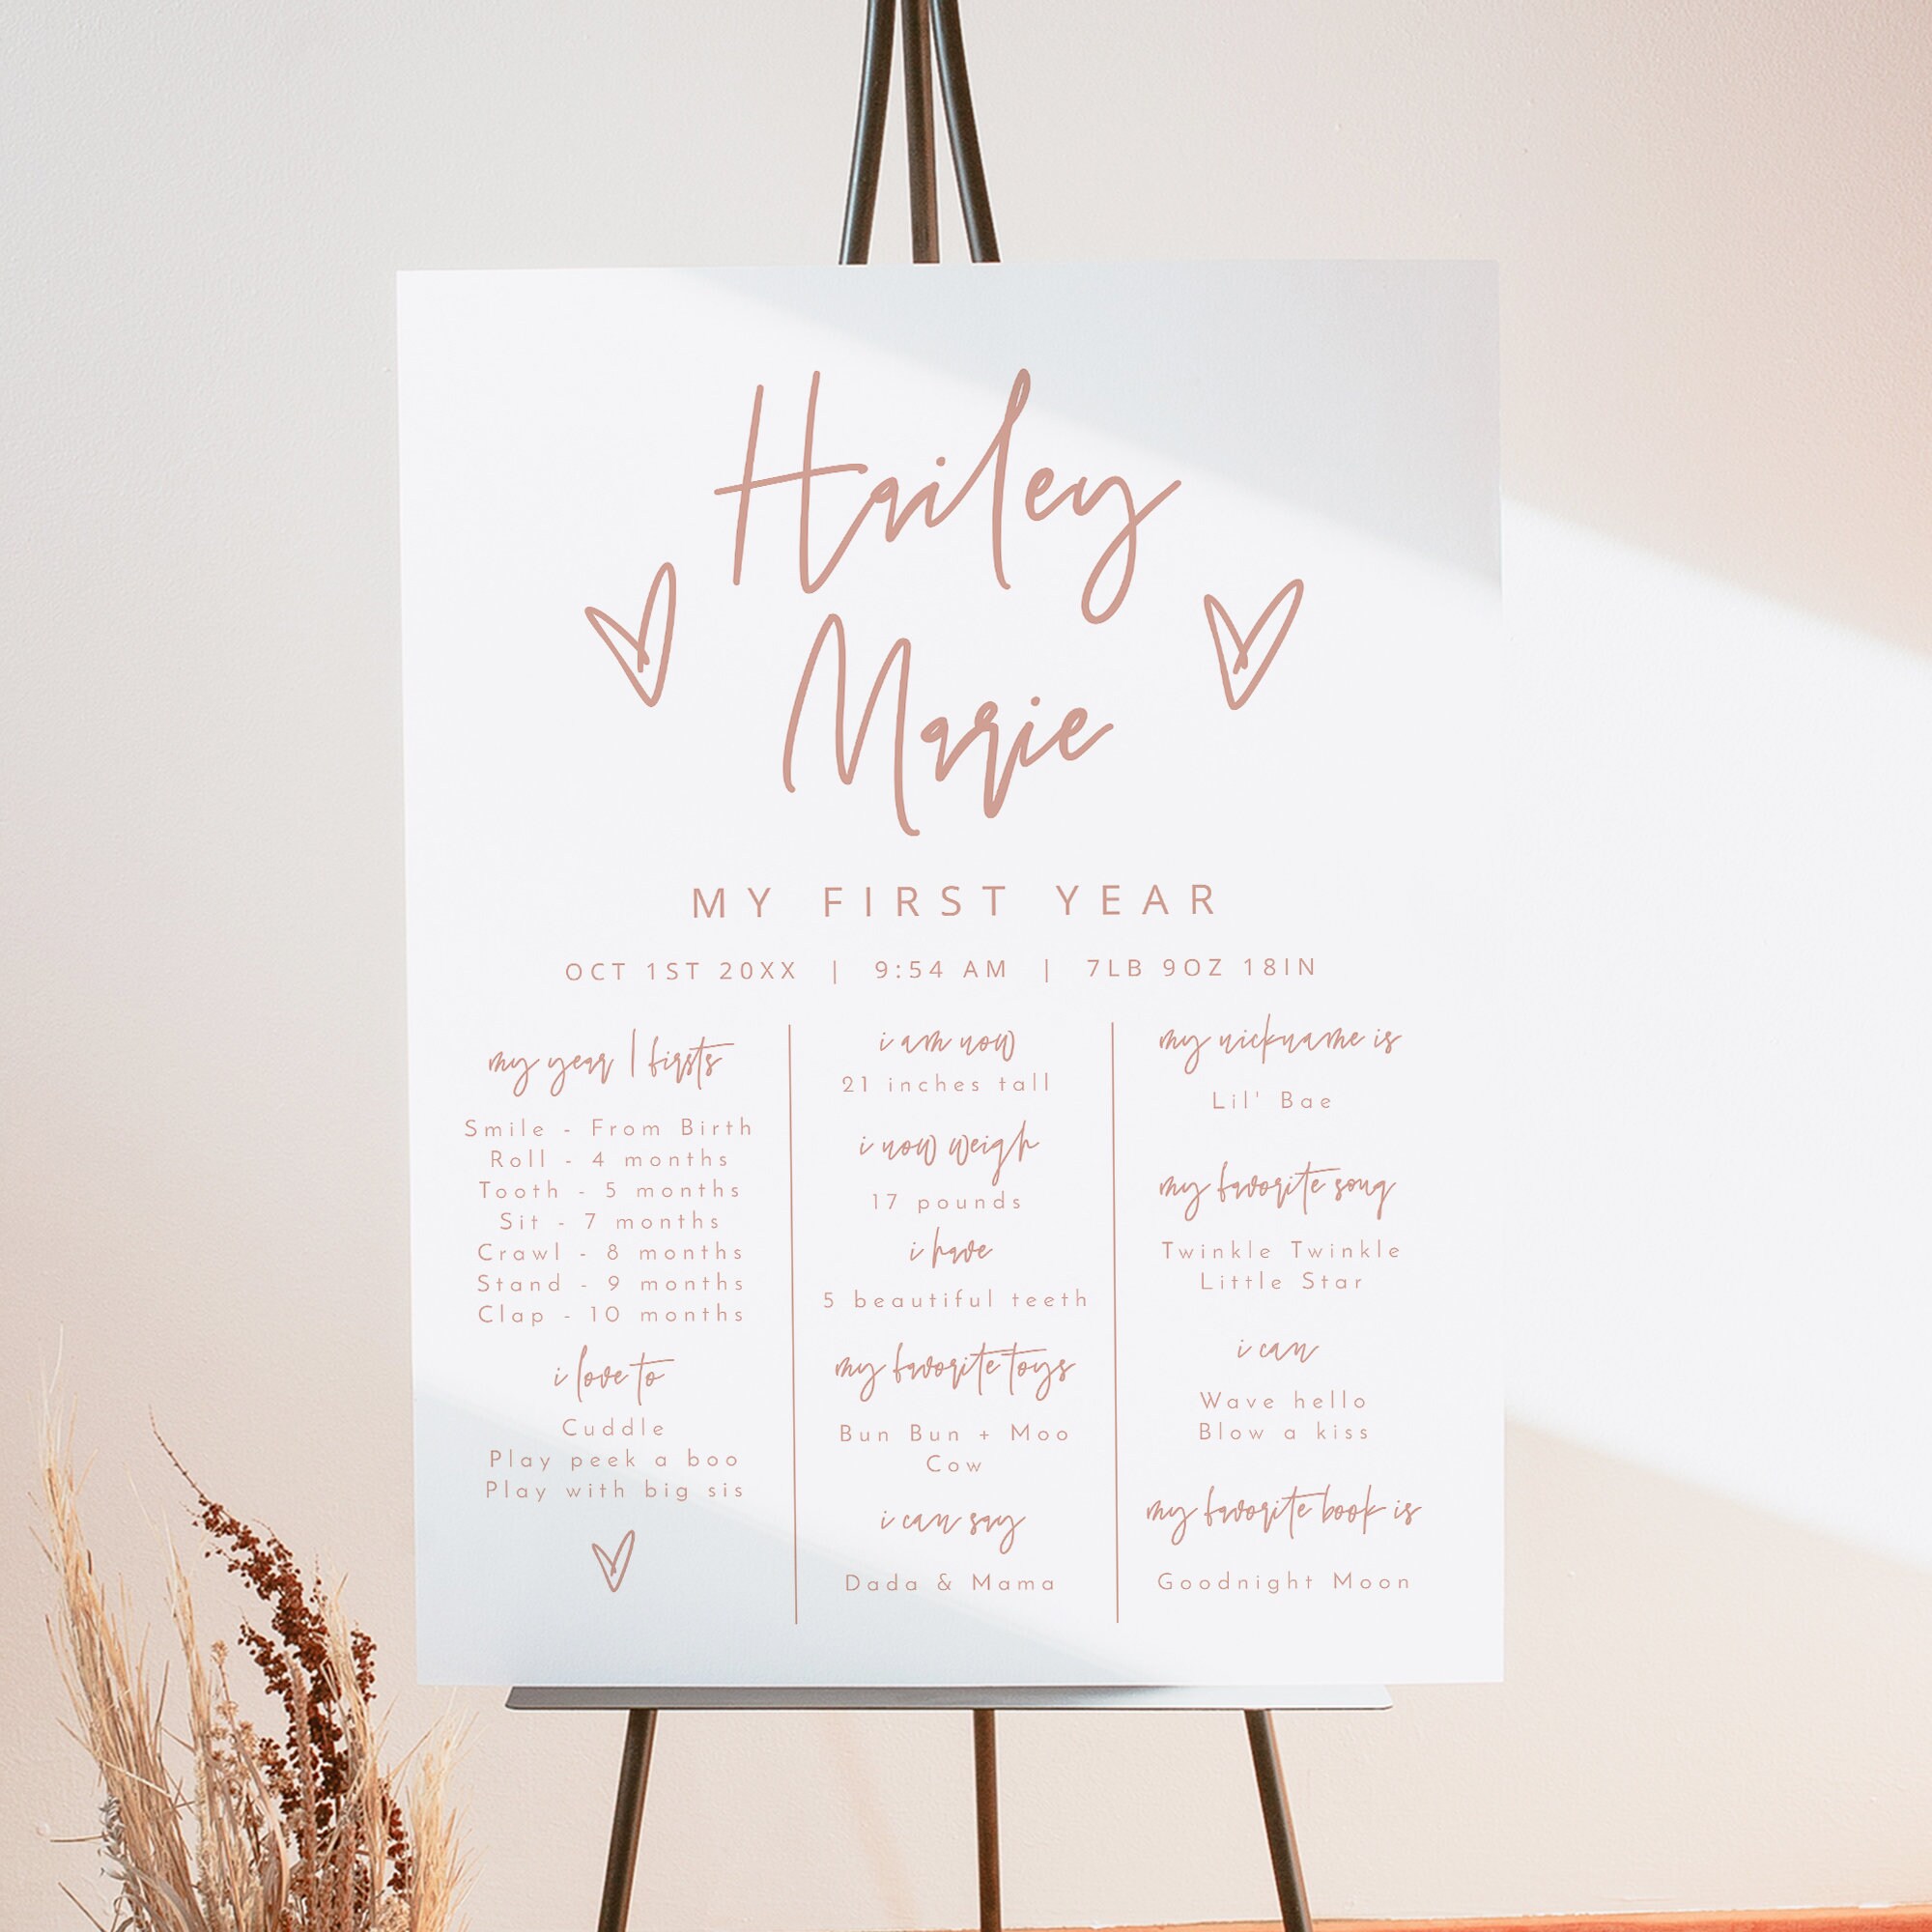 Hailey
Marie
MY FIRST YEAR
OCT 1ST 20XX | 9:54 AM | 7LB 9OZ 18IN
my year 1 firsts
Smile - From Birth
Roll - 4 months
Tooth - 5 months
Sit - 7 months
Crawl - 8 months
Stand - 9 months
Clap - 10 months
i love to
Cuddle
Play peek a boo
Play with big sis
i am now
21 inches tall
i now weigh
17 pounds
i have
5 beautiful teeth
my favorite toys
Bun Bun + Moo
Cow
i can say
Dada & Mama
my nickname is
Lil' Bae
my favorite song
Twinkle Twinkle
Little Star
i can
Wave hello
Blow a kiss
my favorite book is
Goodnight Moon